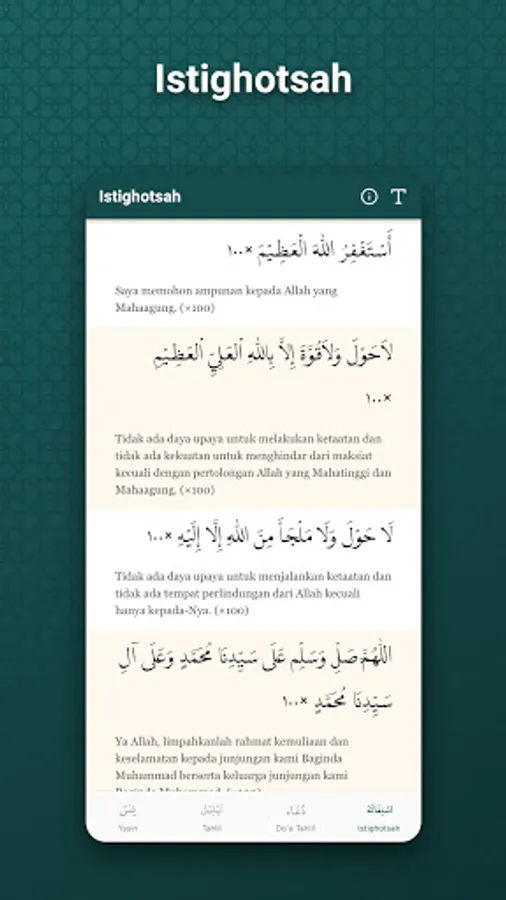 Istighotsah
Istighotsah
أَسْتَغْفِرُ اللهَ الْعَظِيْمَ ×١٠٠
Saya memohon ampunan kepada Allah yang
Mahaagung. (×100)
لَاحَوْلَ وَلَاقُوَّةَ إِلَّا بِاللهِ الْعَلِيِّ الْعَظِيْمِ
×١٠٠
Tidak ada daya upaya untuk melakukan ketaatan dan
tidak ada kekuatan untuk menghindar dari maksiat
kecuali dengan pertolongan Allah yang Mahatinggi dan
Mahaagung. (×100)
لَا حَوْلَ وَلَا مَلْجَأَ مِنَ اللهِ إِلَّا إِلَيْهِ ×١٠٠
Tidak ada daya upaya untuk menjalankan ketaatan dan
tidak ada tempat perlindungan dari Allah kecuali
hanya kepada-Nya. (×100)
اللّٰهُمَّ صَلِّ وَسَلِّم عَلَى سَيِّدِنَا مُحَمَّدٍ وَعَلَى آلِ
سَيِّدِنَا مُحَمَّدٍ ×١٠٠
Ya Allah, limpahkanlah rahmat kemuliaan dan
keselamatan kepada junjungan kami Baginda
Muhammad berserta keluarga junjungan kami
Yasin
Tahlil
Do'a Tahlil
Istighotsah